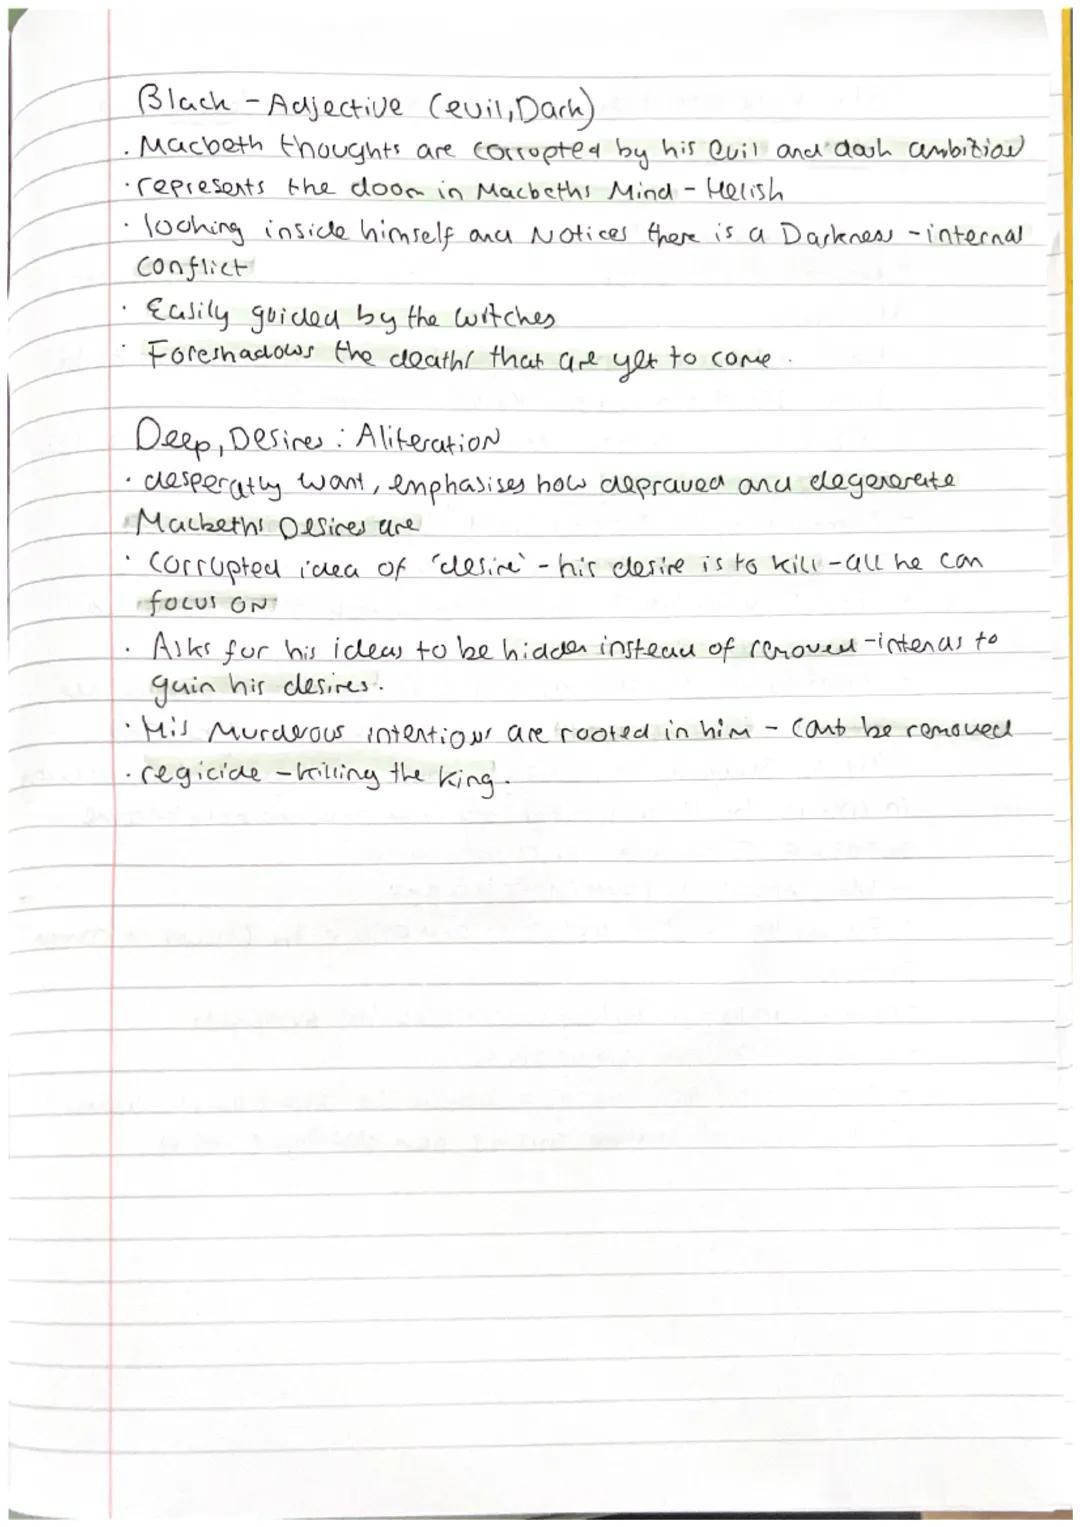 Black - Adjective (evil, Dark)
. Macbeth thoughts are corrupted by his Evil and dark ambition
. represents the doom in Macbeths Mind - Helish
. looking inside himself and Notices there is a Darkness - internal
conflict
. Easily guided by the witches
. Foreshadows the deaths that are yet to come .
Deep, Desires : Aliteration
. desperatly want, emphasises how depraved and degenerate
Macbeths Desires are
. Corrupted idea of 'desire' - his desire is to kill - all he can
focus on
. Asks for his ideas to be hidden instead of removed - intends to
gain his desires .
. His Murderous intentions are rooted in him - cant be removed
. regicide - killing the king .